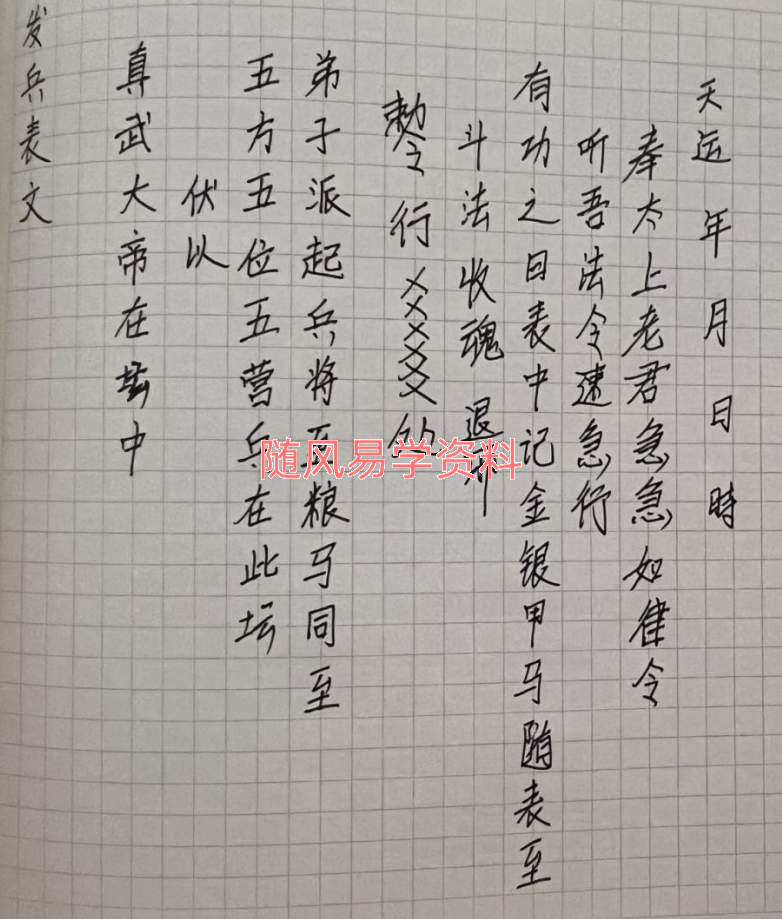 发兵表文
真武大帝在坛中
伏以
五方五位五营兵在此坛
弟子派起兵将粮马同至
勅令行×××××处
斗法收魂退
有功之日表中记金银甲马随表至
听吾法令速急行
奉太上老君急急如律令
天运年月日時
随风易学资料